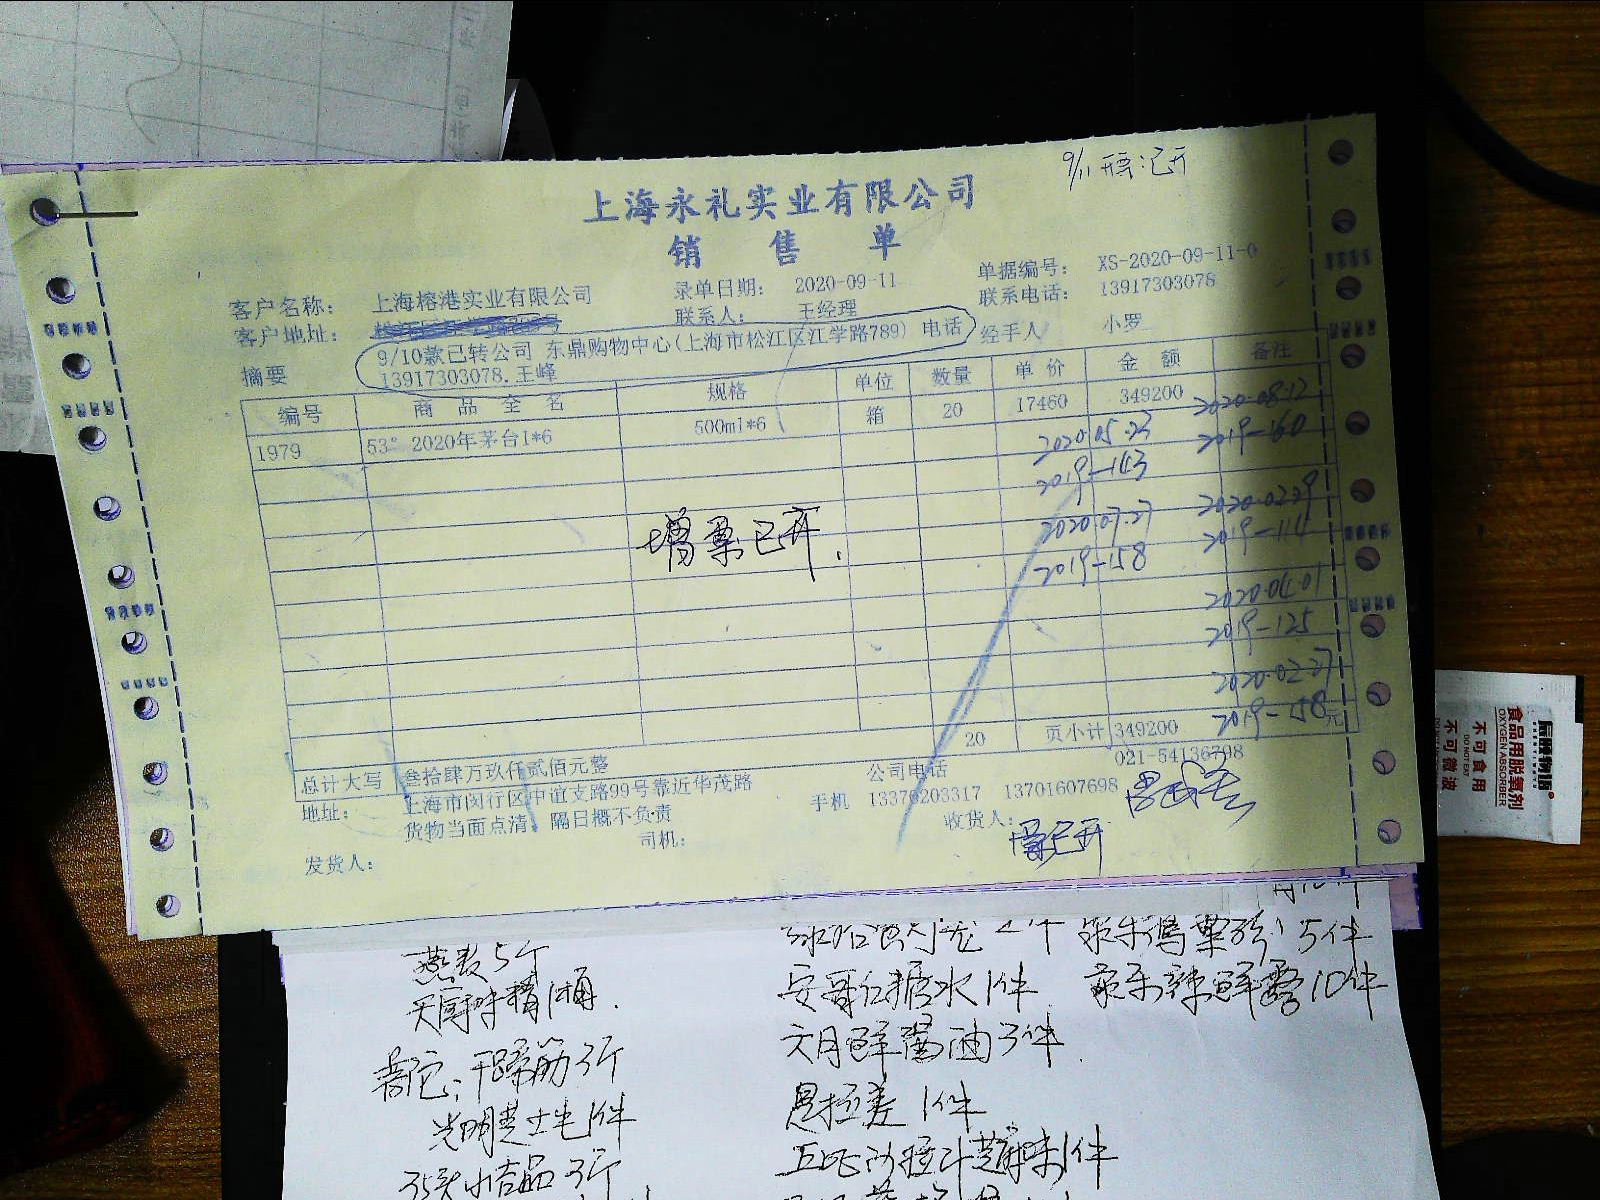 9/11 票已开
上海永礼实业有限公司
销 售 单
客户名称： 上海榕港实业有限公司 录单日期： 2020-09-11 单据编号： XS-2020-09-11-0
客户地址： 联系人： 王经理 联系电话： 13917303078
摘要 9/10款已转公司 东鼎购物中心(上海市松江区江学路789) 电话 经手人 小罗
13917303078.王峰
编号 商 品 全 名 规格 单位 数量 单 价 金 额 备注
1979 53° 2020年茅台1*6 500ml*6 箱 20 17460 349200
2020.05.23 2020-08-12
2019-143 2019-160
2020.07.27 2020.02.29
2019-158 2019-114
增票已开.
2020.04.01
2019-125
2020.02.27
2019-158
20 页小计 349200 元
总计大写 叁拾肆万玖仟贰佰元整 公司电话 021-54136798
地址： 上海市闵行区中谊支路99号靠近华茂路 手机 13376203317 13701607698
货物当面点清，隔日概不负责 收货人：
发货人： 司机：
票已开
燕麦5个 5件
天厨味精1桶. 安哥红糖水1件 辣鲜露10件
其它：干蹄筋3斤 六月鲜酱油3件
光明芝士 1件 1件
3斤 1件
食品用脱氧剂
OXYGEN ABSORBER
不可食用
DO NOT EAT
不可微波